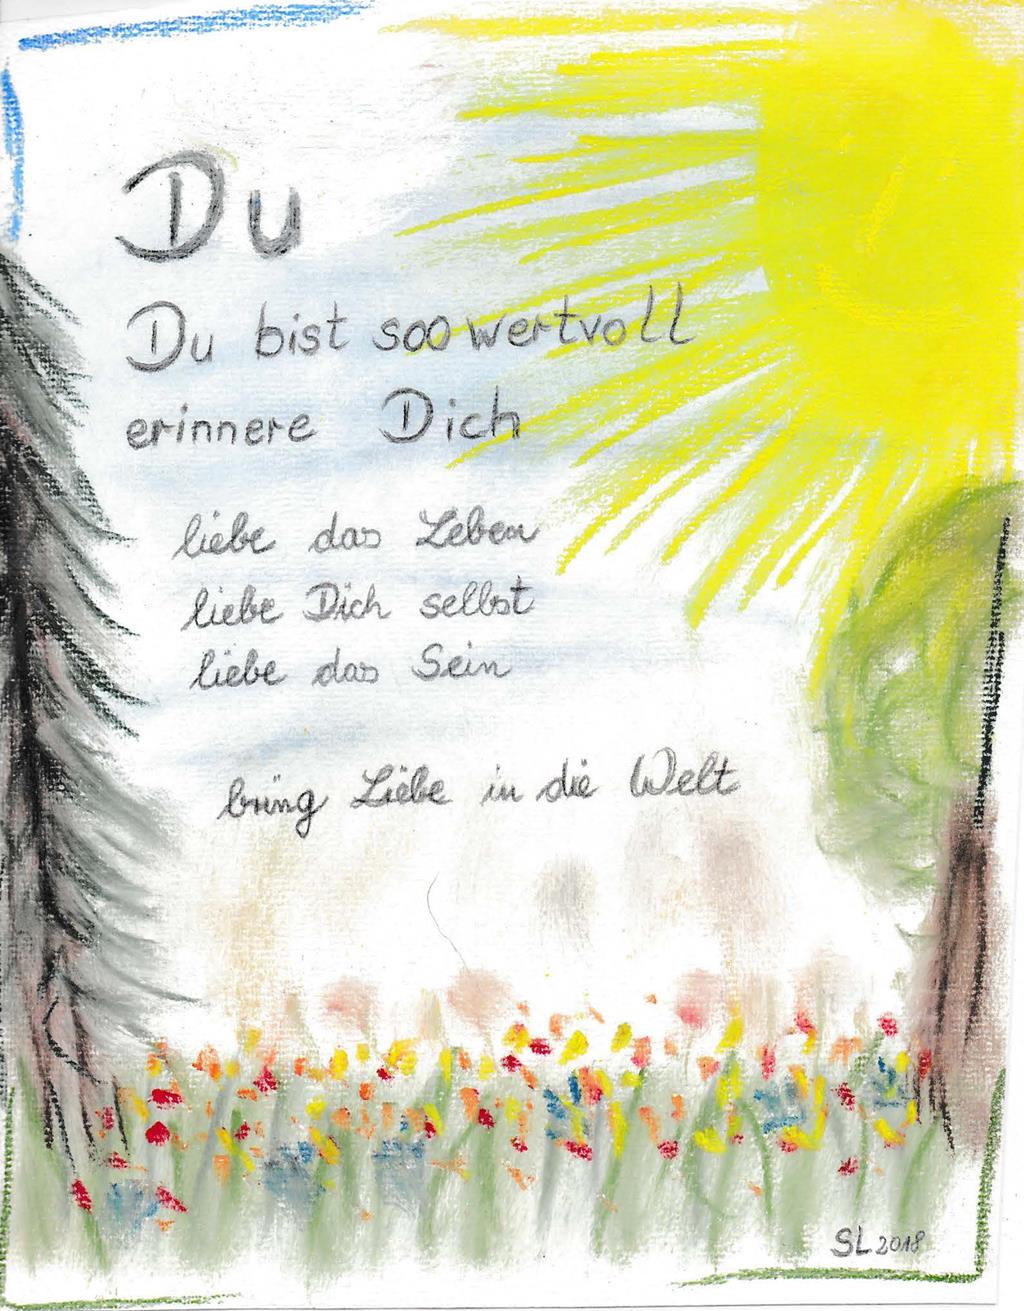 Du
Du bist soo wertvoll
erinnere Dich
liebe das Leben
liebe Dich selbst
liebe das Sein
bring Liebe in die Welt
SL 2018